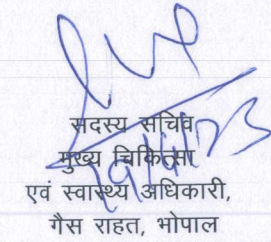 सदस्य सचिव
मुख्य चिकित्सा
एवं स्वास्थ्य अधिकारी,
गैस राहत, भोपाल